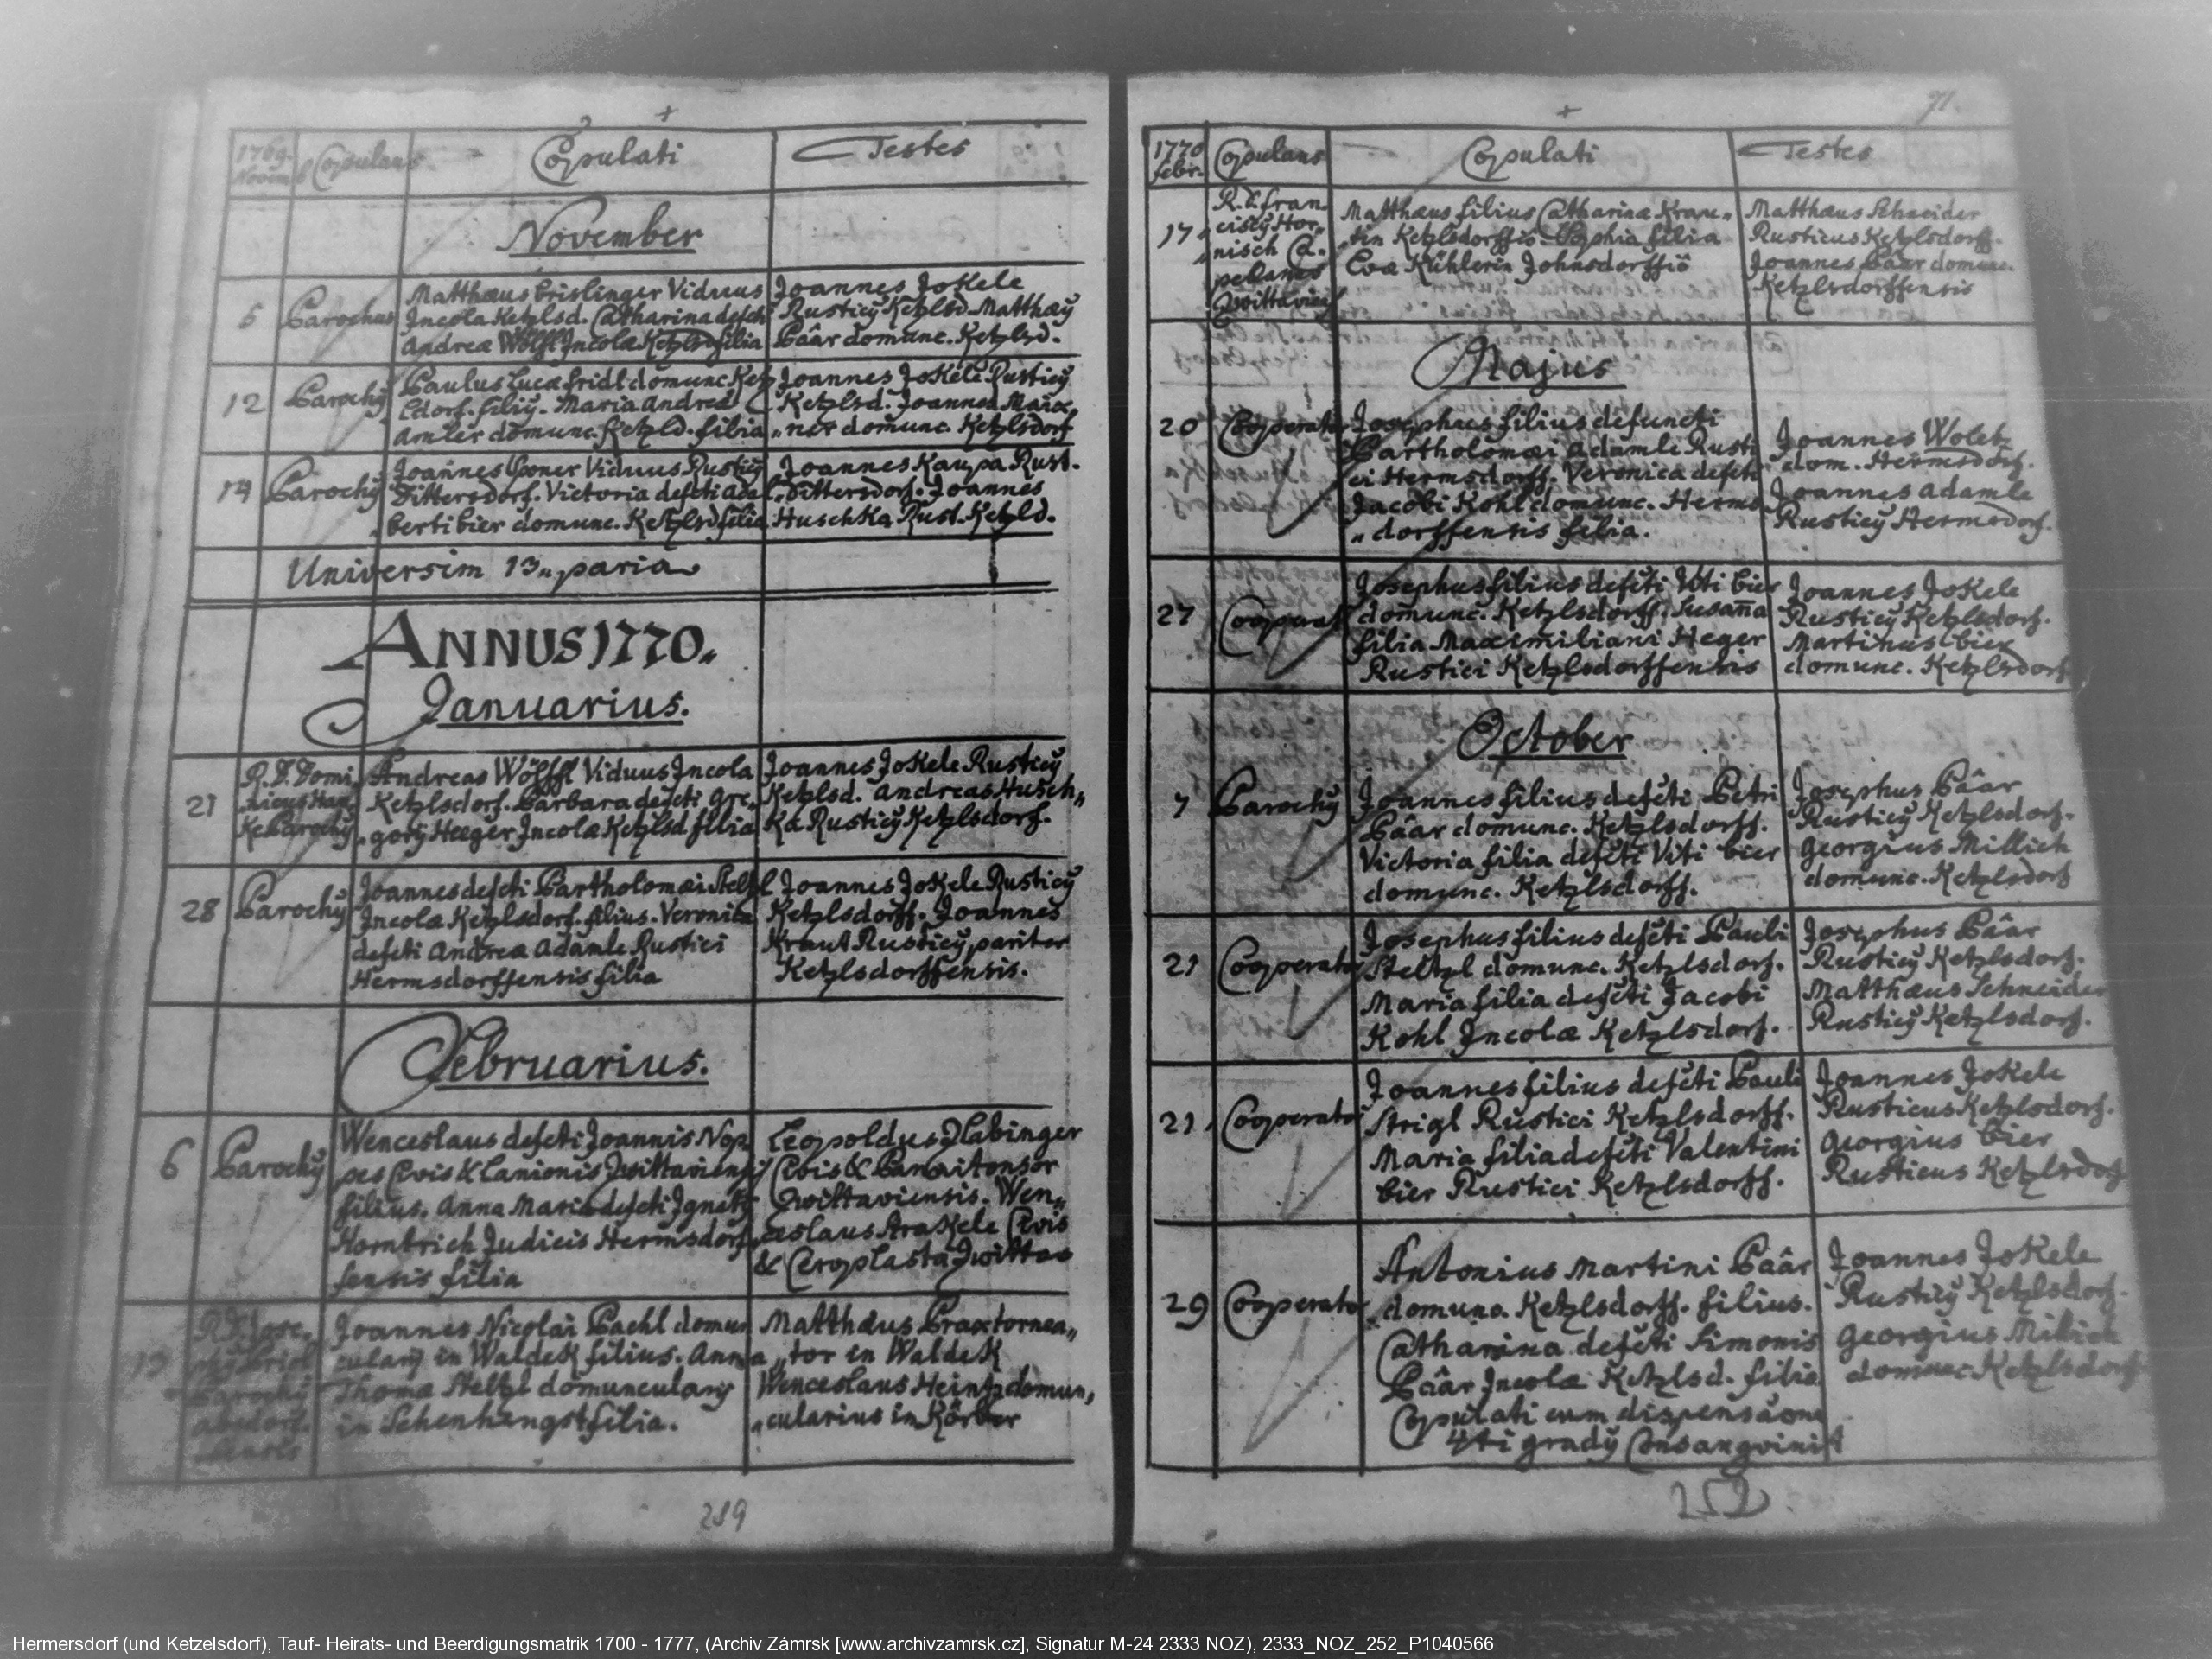 +
1769. Novem
Copulans
Copulati
Testes
November
5
Parochus
Matthæus Crislinger Viduus
Incola Ketzlsd. Catharina defcti
Andreæ Wölffl Incolæ Ketzlsd filia
Joannes Jokele
Rusticy Ketzlsd. Matthæy
Pâar domunc. Ketzlsd.
12
Parochy
Paulus Lucæ fridl domunc Ketz
ldorf. filiy. Maria Andreæ
Amler domunc. Ketzld. filia
Joannes Jokele Rusticy
Ketzlsd. Joannes Maix
„ner domunc. Ketzlsdorf
14
Parochy
Joannes Viduus Rusticy
Dittersdorf. Victoria defcti Adal
berti bier domunc. Ketzlsd filia
Joannes Kaupa Rust.
Dittersdorf. Joannes
Huschka Rust. Ketzld.
Universim 13„ paria
ANNUS 1770.
Januarius.
21
R. D. Domi,
nicus Han,
Ke Parochy
Andreas Wölffl Viduus Incola
Ketzlsdorf. Barbara defcti Gre„
gorij Heeger Incolæ Ketzlsd filia
Joannes Jokele Rusticy
Ketzlsd. Andreas Husch„
ka Rusticy Ketzlsdorf.
28
Parochy
Joannes defcti Bartholomæi Steltzl
Incolæ Ketzlsdorf. filius. Veronica
defcti Andreæ Adamle Rustici
Hermsdorffensis filia
Joannes Jokele Rusticy
Ketzlsdorff. Joannes
Kraut Rusticy pariter
Ketzlsdorffensis.
Februarius.
6
Parochy
Wenceslaus defcti Joannis Nop
pes Civis & Lanionis Zwittaviensis
filius. Anna Maria defcti Ignatij
Hornbrich Judicis Hermsdorf
fensis filia
Leopoldus Habinger
Civis & Pannitonsor
Zwittaviensis. Wen„
ceslaus Strakele Civis
& Ceroplasta Zwittav
13
Parochy
Joannes Nicolai Pachl domun
cularij in Waldek filius. Anna
Thomæ Steltzl domuncularij
in Schenhengst filia.
Matthæus Prax tornea„
„tor in Waldek
Wenceslaus Heintz domun,
„cularius in Körber
219
71.
+
1770 febr.
Copulans
Copulati
Testes
17
R. D. fran„
cisCy Hor„
nisch Ca„
pelanus
Zwittavien
Matthæus filius Catharinæ Krau„
„tin Ketzlsdorffis Sophia filia
Evæ Kühlerin Johnsdorffis
Matthæus Schneider
Rusticus Ketzlsdorff.
Joannes Pâar domunc.
Ketzlsdorffensis
Majus
20
Cooperator
Josephus filius defuncti
Bartholomæi Adamle Rusti
ci Hermsdorff. Veronica defcti
Jacobi Kohl domunc. Herms
„dorffensis filia.
Joannes Woletz
dom. Hermsdorf.
Joannes Adamle
Rusticy Hermsdorf.
27
Cooperat
Josephus filius defcti Viti bier
domunc. Ketzlsdorff. Susanna
filia Maximiliani Heger
Rustici Ketzlsdorffensis
Joannes Jokele
Rusticy Ketzlsdorf.
Martinus bier
domunc. Ketzlsdorf
October
7
Parochy
Joannes filius defcti Petri
Pâar domunc. Ketzlsdorff.
Victoria filia defcti Viti bier
domunc. Ketzlsdorff.
Josephus Pâar
Rusticy Ketzlsdorf.
Georgius Millich
domunc. Ketzlsdorf
21
Cooperator
Josephus filius defcti Pauli
Steltzl domunc. Ketzlsdorf.
Maria filia defcti Jacobi
Kohl Incolæ Ketzlsdorf.
Josephus Pâar
Rusticy Ketzlsdorf.
Matthæus Schneider
Rusticy Ketzlsdorf.
21,
Cooperator
Joannes filius defcti Pauli
Strigl Rustici Ketzlsdorff.
Maria filia defcti Valentini
bier Rustici Ketzlsdorff.
Joannes Jokele
Rusticus Ketzlsdorf.
Georgius bier
Rusticus Ketzlsdorf
29
Cooperator
Antonius Martini Pâar
domunc. Ketzlsdorff. filius.
Catharina defcti Simonis
Pâar Incolæ Ketzlsd. filia
Copulati cum dispensaone
4ti gradÿ Consangvinit
Joannes Jokele
Rusticy Ketzlsdorf.
Georgius Milich
domunc Ketzlsdorf
252
Hermersdorf (und Ketzelsdorf), Tauf- Heirats- und Beerdigungsmatrik 1700 - 1777, (Archiv Zámrsk [www.archivzamrsk.cz], Signatur M-24 2333 NOZ), 2333_NOZ_252_P1040566